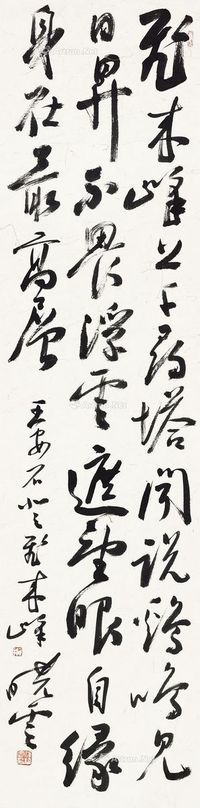 飛來峰上千尋塔聞說鷄鳴見
日昇不畏浮雲遮望眼自緣
身在最高層
王安石登飛來峰 曉雲